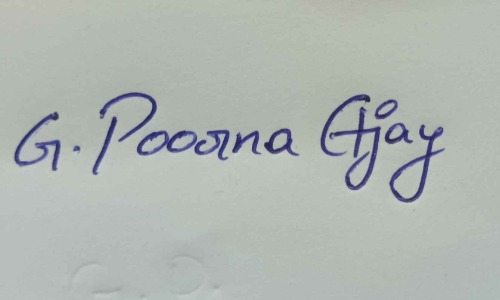 G. Poorna Ajay